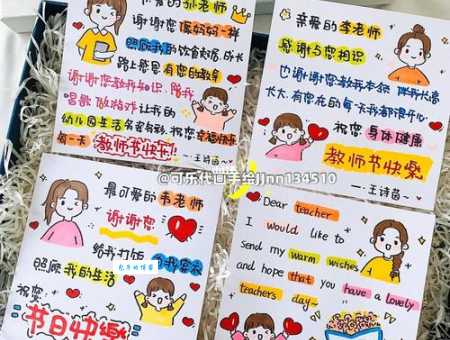 亲爱的孙老师
谢谢您像妈妈一样
照顾我的饮食起居,成长
路上感恩有您的教导
谢谢您教我知识,陪我
唱歌做游戏让我的
幼儿园生活
每一天
教师节快乐!
亲爱的李老师
感谢与您相识
也谢谢您教我本领 伴我长高
长大,有您在的每一天我都很开心
祝您 身体健康
教师节快乐
—王诗茵~
@可乐代写手绘
134510
最可爱的韦老师
谢谢您
给我打饭
照顾我的生活
祝您
节日快樂
Dear teacher
I would like to
send my warm wishes
and hope that you have a lovely
teachers day~